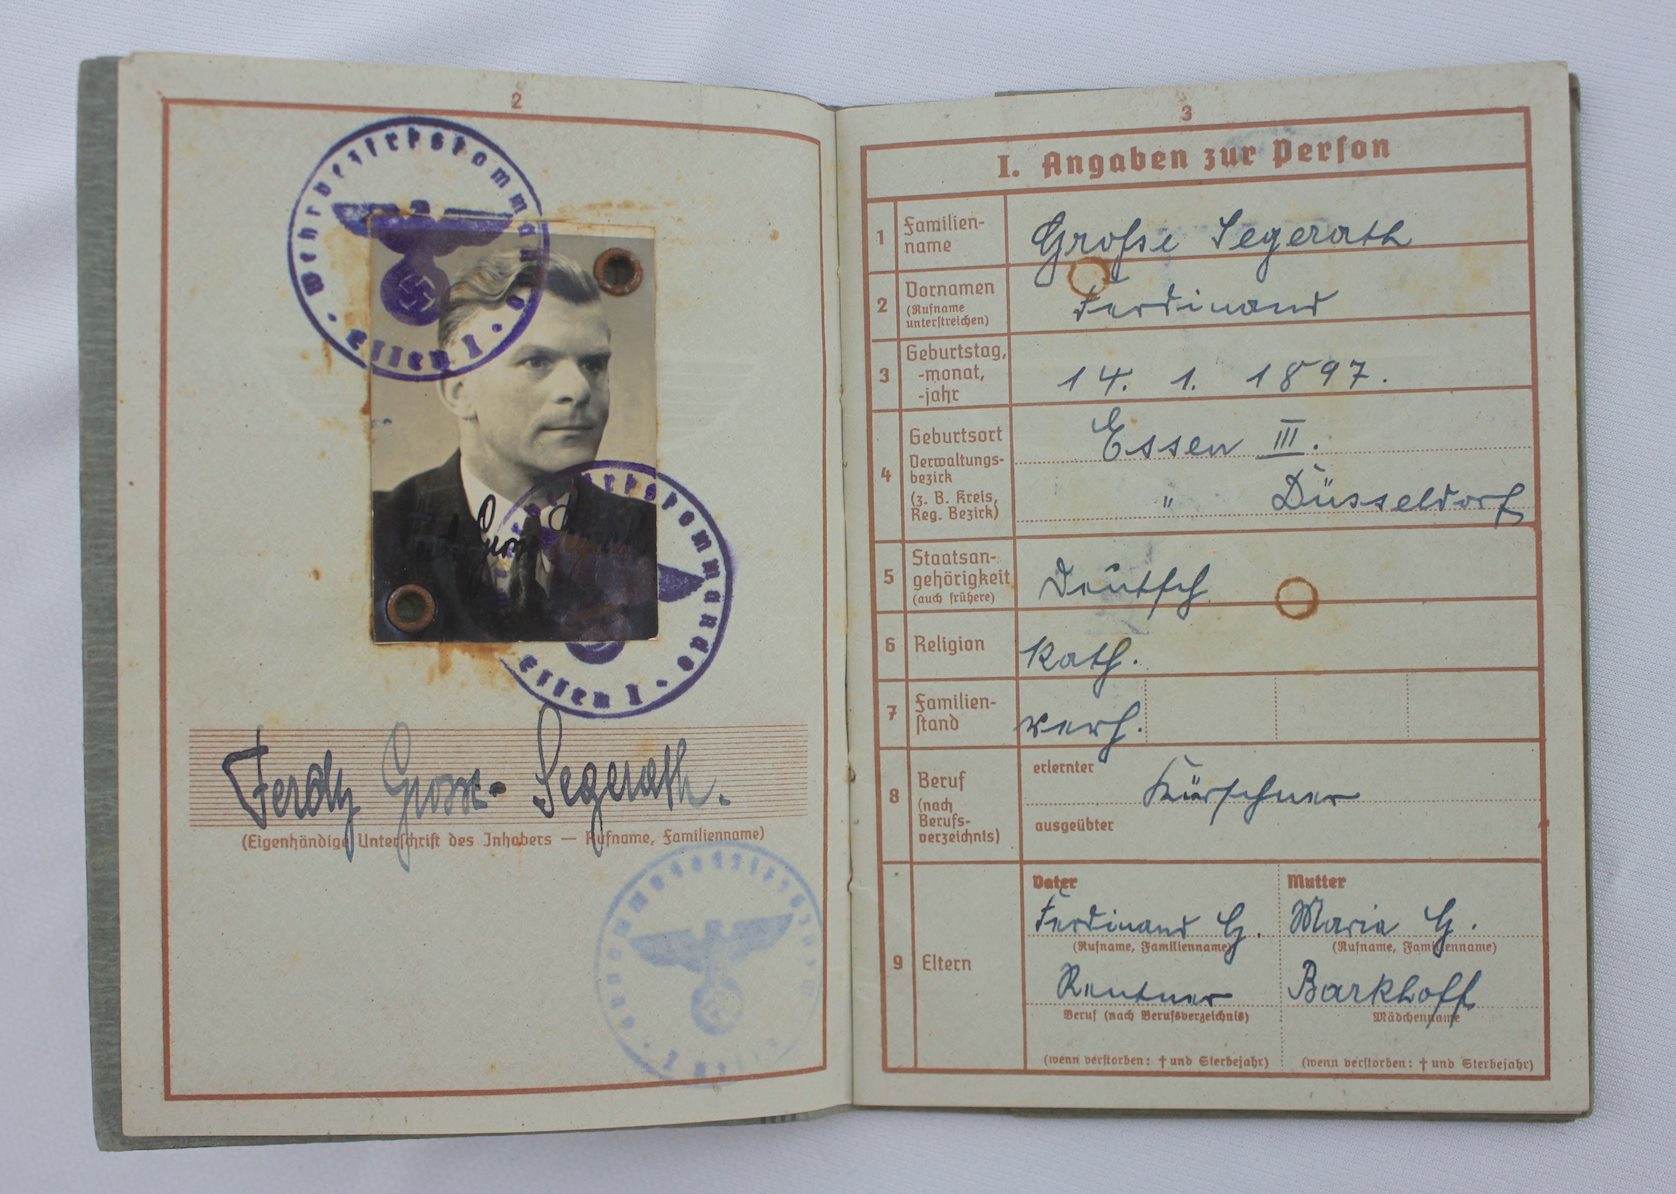 2
Wehrbezirkskommando
Essen I
Wehrbezirkskommando
Essen I
Ferdy Gross-Segerath.
(Eigenhändige Unterschrift des Inhabers — Rufname, Familienname)
3
I. Angaben zur Person
1 Familien-
name
Große Segerath
2 Vornamen
(Rufname
unterstreichen)
Ferdinand
3 Geburtstag,
-monat,
-jahr
14. 1. 1897.
4 Geburtsort
Verwaltungs-
bezirk
(z. B. Kreis,
Reg. Bezirk)
Essen III.
" Düsseldorf
5 Staatsan-
gehörigkeit
(auch frühere)
Deutsch
6 Religion
kath.
7 Familien-
stand
verh.
8 Beruf
(nach
Berufs-
verzeichnis)
erlernter
Kürschner
ausgeübter
9 Eltern
Vater
Ferdinand G.
(Rufname, Familienname)
Rentner
Beruf (nach Berufsverzeichnis)
(wenn verstorben: † und Sterbejahr)
Mutter
Maria G.
(Rufname, Familienname)
Barkhoff
Mädchenname
(wenn verstorben: † und Sterbejahr)